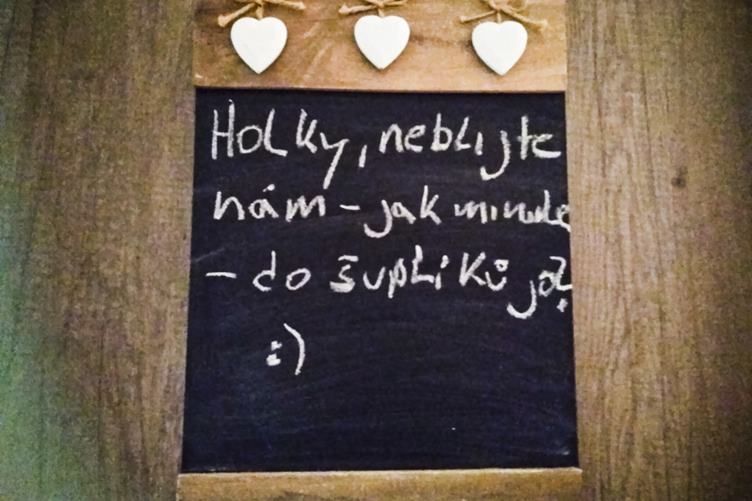 Holky, neblijte
nám - jak minule
- do šuplíků jo?
:)